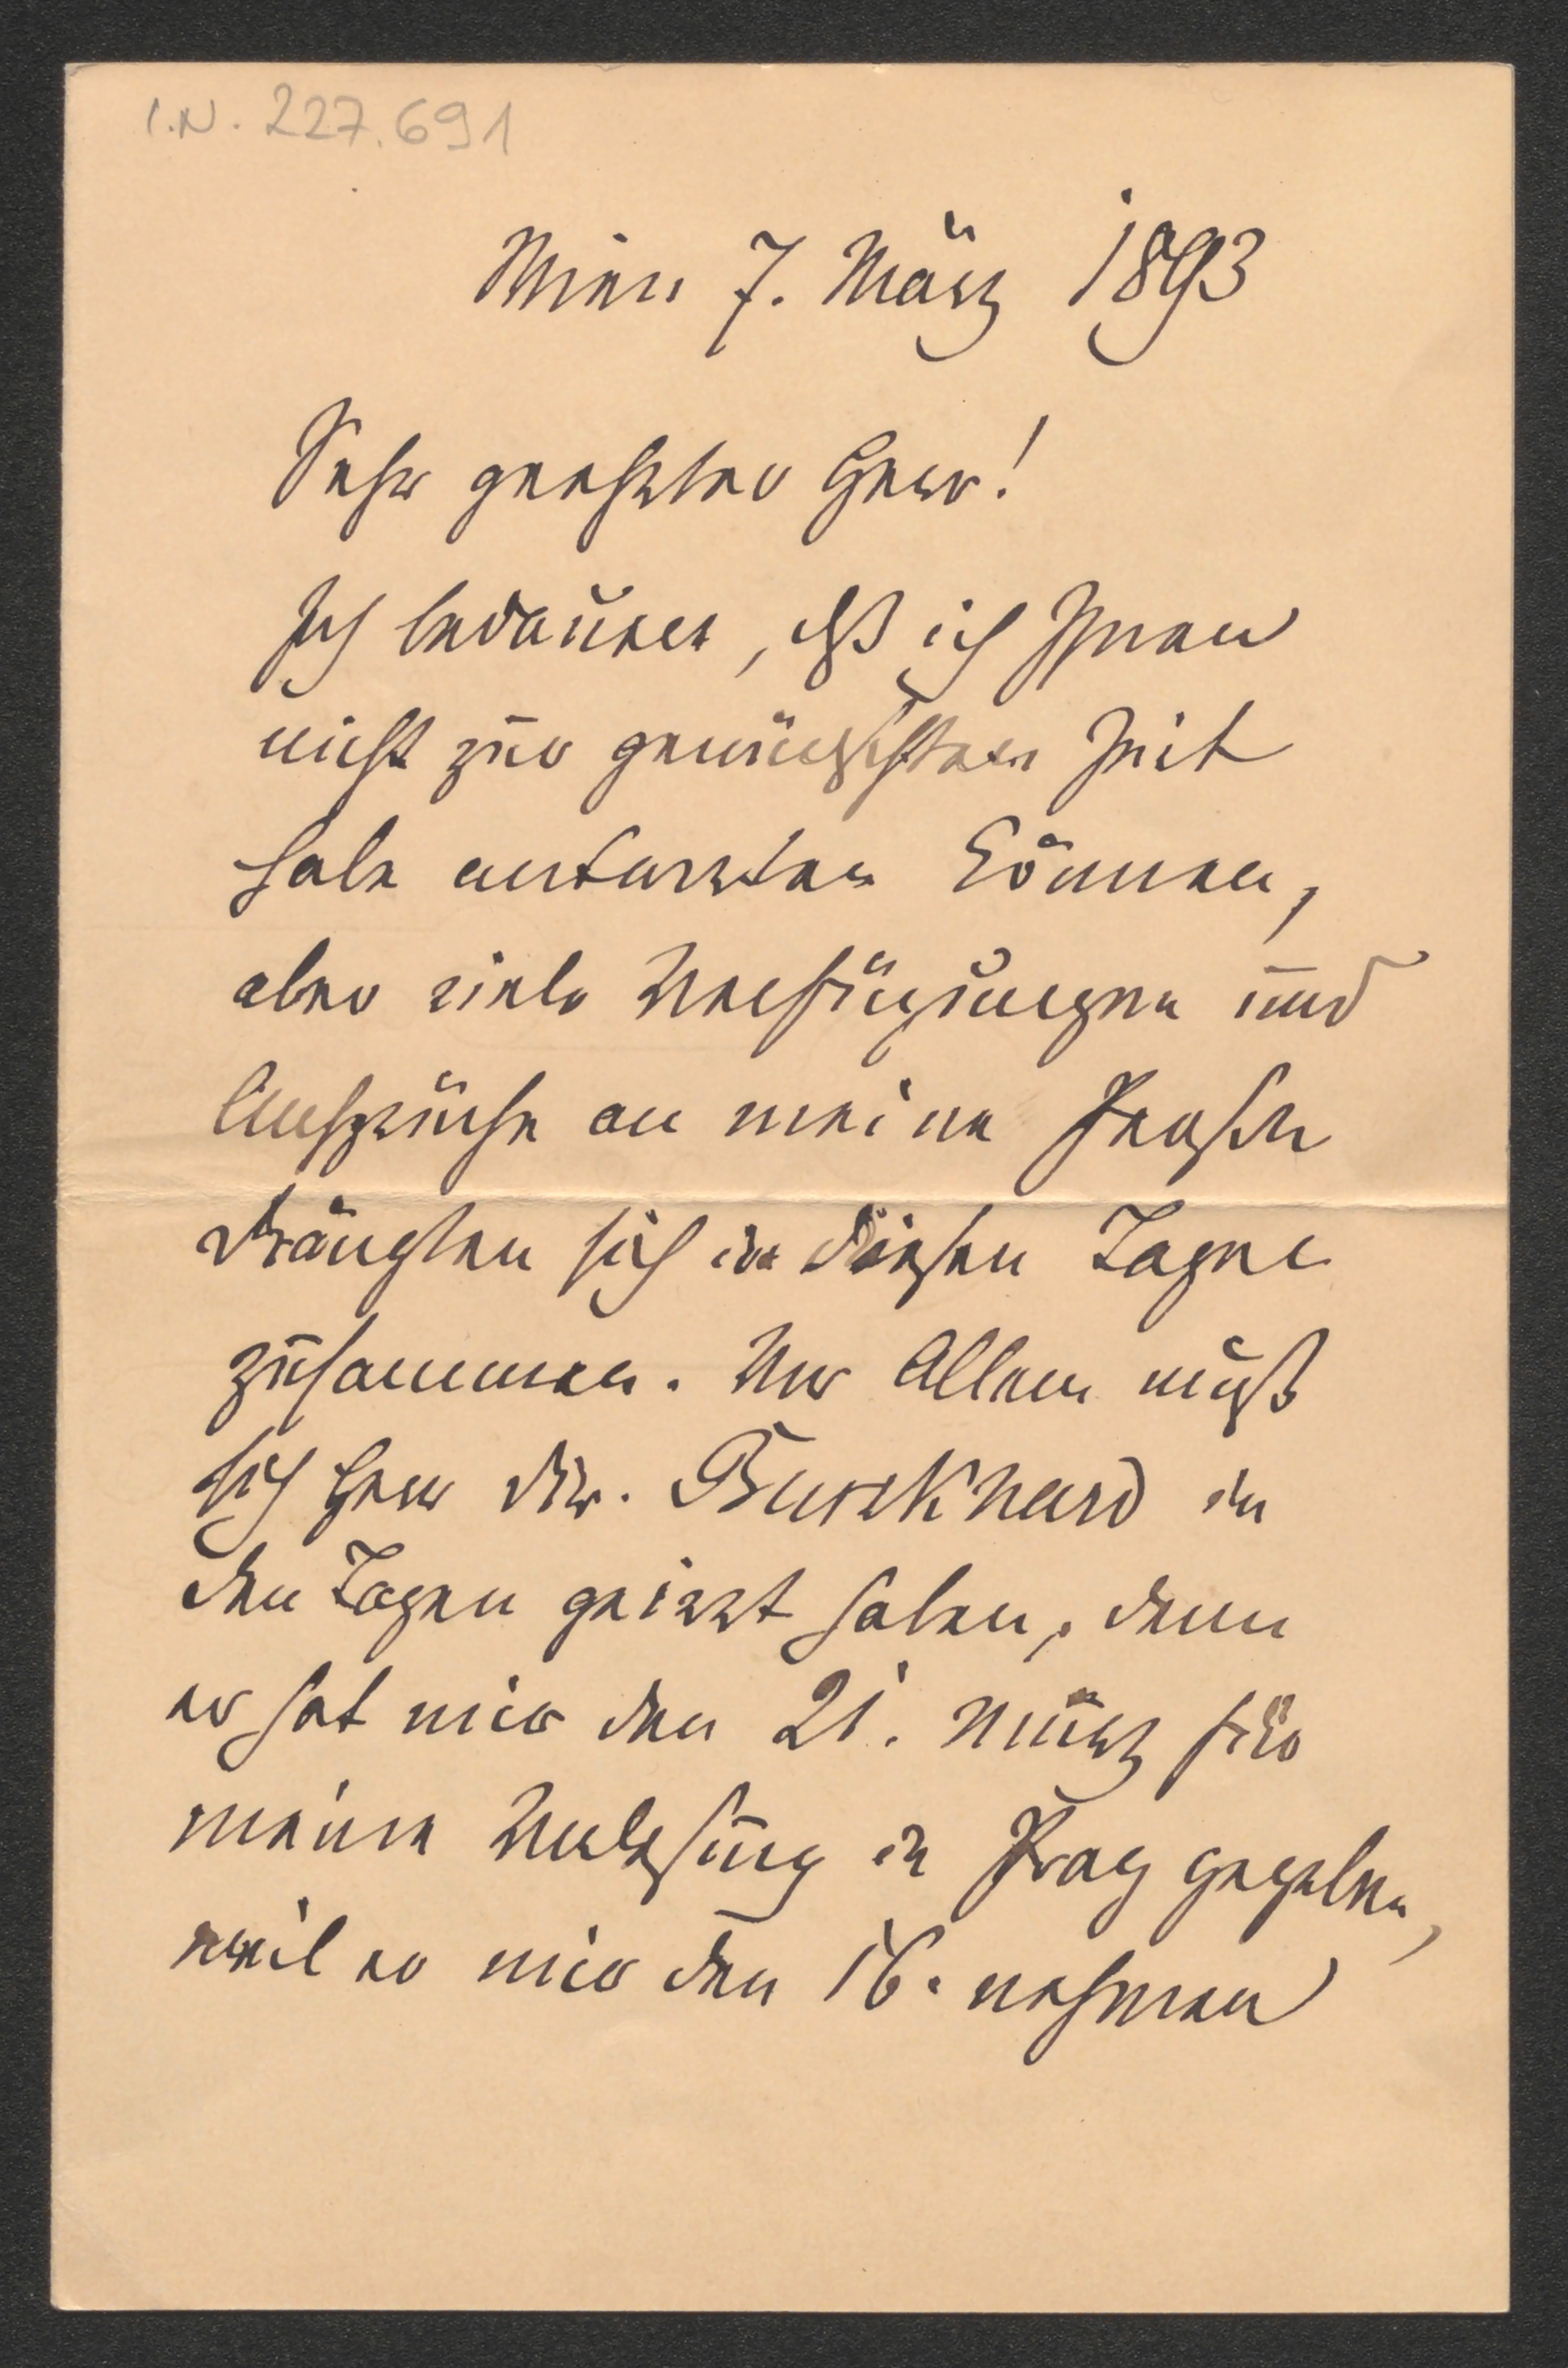 I.N. 227.691
Wien 7. März 1893
Sehr geehrter Herr!
Ich bedauere, daß ich Ihnen
nicht zur gewünschten Zeit
habe antworten können,
aber viele Verfügungen und
Ansprüche an meine Person
drängten sich in diesen Tagen
zusammen. Vor Allem muß
sich Herr Dir. Burckhard in
den Tagen geirrt haben, denn
er hat mir den 21. März für
meine Vorlesung in Prag gegeben,
weil er mir den 16. nehmen